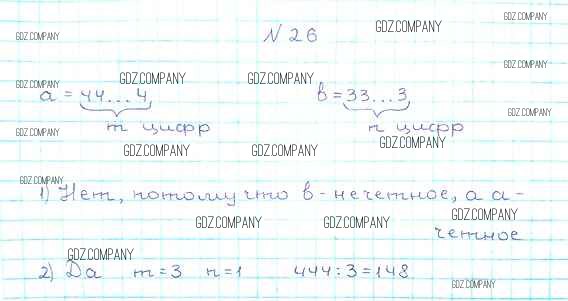 № 26
GDZ.COMPANY GDZ.COMPANY GDZ.COMPANY
GDZ.COMPANY GDZ.COMPANY GDZ.COMPANY
a = 44...4 в = 33...3
m цифр n цифр
GDZ.COMPANY GDZ.COMPANY
GDZ.COMPANY GDZ.COMPANY GDZ.COMPANY
GDZ.COMPANY
1) Нет, потому что в - нечетное, а a -
GDZ.COMPANY GDZ.COMPANY GDZ.COMPANY
четное
GDZ.COMPANY
2) Да m = 3 n = 1 444 : 3 = 148
GDZ.COMPANY